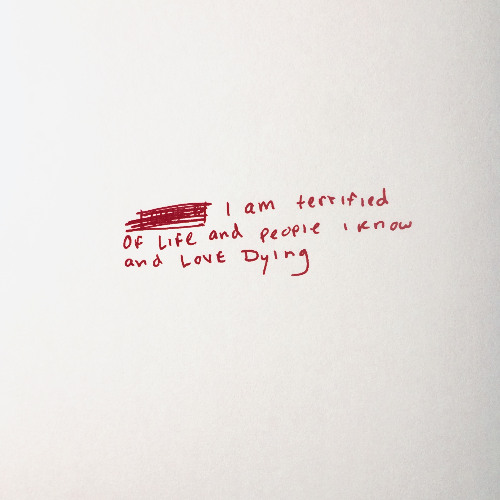 I am terrified
Of Life and people i know
and LOVE Dying